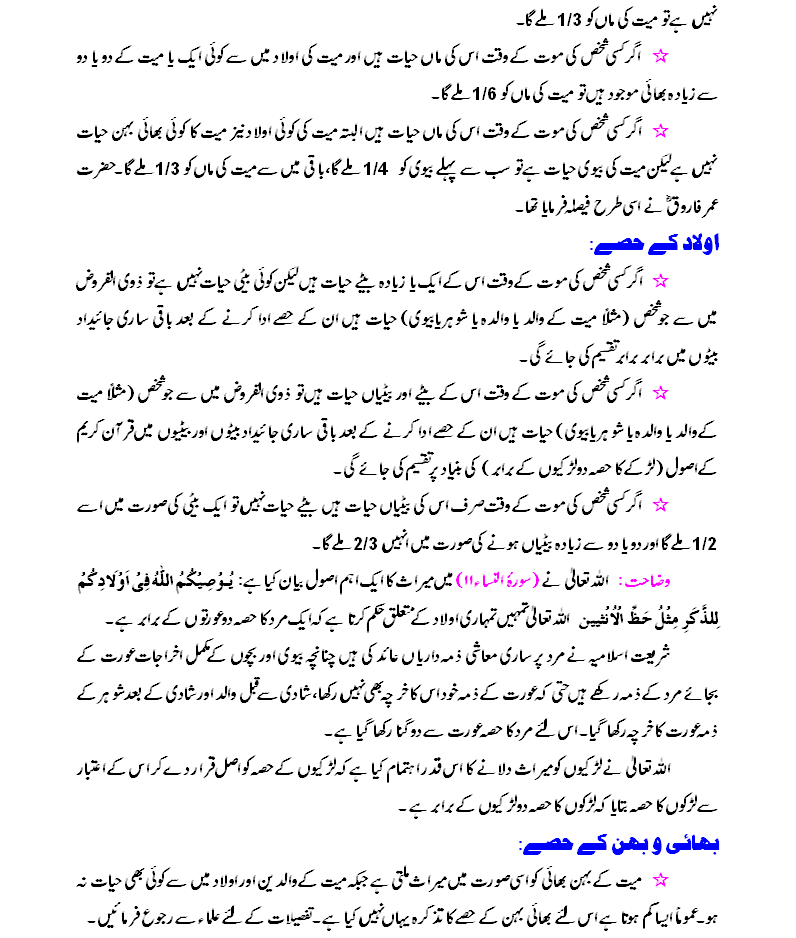 نہیں ہے تو میت کی ماں کو 1/3 ملے گا۔
☆ اگر کسی شخص کی موت کے وقت اس کی ماں حیات ہیں اور میت کی اولاد میں سے کوئی ایک یا میت کے دو یا دو
سے زیادہ بھائی موجود ہیں تو میت کی ماں کو 1/6 ملے گا۔
☆ اگر کسی شخص کی موت کے وقت اس کی ماں حیات ہیں البتہ میت کی کوئی اولاد نیز میت کا کوئی بھائی بہن حیات
نہیں ہے لیکن میت کی بیوی حیات ہے تو سب سے پہلے بیوی کو 1/4 ملے گا، باقی میں سے میت کی ماں کو 1/3 ملے گا۔ حضرت
عمر فاروقؓ نے اسی طرح فیصلہ فرمایا تھا۔
اولاد کے حصے:
☆ اگر کسی شخص کی موت کے وقت اس کے ایک یا زیادہ بیٹے حیات ہیں لیکن کوئی بیٹی حیات نہیں ہے تو ذوی الفروض
میں سے جو شخص (مثلاً میت کے والد یا والدہ یا شوہر یا بیوی) حیات ہیں ان کے حصے ادا کرنے کے بعد باقی ساری جائیداد
بیٹوں میں برابر برابر تقسیم کی جائے گی۔
☆ اگر کسی شخص کی موت کے وقت اس کے بیٹے اور بیٹیاں حیات ہیں تو ذوی الفروض میں سے جو شخص (مثلاً میت
کے والد یا والدہ یا شوہر یا بیوی) حیات ہیں ان کے حصے ادا کرنے کے بعد باقی ساری جائیداد بیٹوں اور بیٹیوں میں قرآن کریم
کے اصول (لڑکے کا حصہ دو لڑکیوں کے برابر) کی بنیاد پر تقسیم کی جائے گی۔
☆ اگر کسی شخص کی موت کے وقت صرف اس کی بیٹیاں حیات ہیں بیٹے حیات نہیں تو ایک بیٹی کی صورت میں اسے
1/2 ملے گا اور دو یا دو سے زیادہ بیٹیاں ہونے کی صورت میں انہیں 2/3 ملے گا۔
وضاحت: اللہ تعالیٰ نے (سورۃ النساء ۱۱) میں میراث کا ایک اہم اصول بیان کیا ہے: یُوْصِیْکُمُ اللّٰہُ فِیْ اَوْلَادِکُمْ
لِلذَّکَرِ مِثْلُ حَظِّ الْاُنْثَیین اللہ تعالیٰ تمہیں تمہاری اولاد کے متعلق حکم کرتا ہے کہ ایک مرد کا حصہ دو عورتوں کے برابر ہے۔
شریعت اسلامیہ نے مرد پر ساری معاشی ذمہ داریاں عائد کی ہیں چنانچہ بیوی اور بچوں کے مکمل اخراجات عورت کے
بجائے مرد کے ذمہ رکھے ہیں حتی کہ عورت کے ذمہ خود اس کا خرچہ بھی نہیں رکھا، شادی سے قبل والد اور شادی کے بعد شوہر کے
ذمہ عورت کا خرچہ رکھا گیا۔ اس لئے مرد کا حصہ عورت سے دو گنا رکھا گیا ہے۔
اللہ تعالیٰ نے لڑکیوں کو میراث دلانے کا اس قدر اہتمام کیا ہے کہ لڑکیوں کے حصہ کو اصل قرار دے کر اس کے اعتبار
سے لڑکوں کا حصہ بتایا کہ لڑکوں کا حصہ دو لڑکیوں کے برابر ہے۔
بھائی و بھن کے حصے:
☆ میت کے بہن بھائی کو اسی صورت میں میراث ملتی ہے جبکہ میت کے والدین اور اولاد میں سے کوئی بھی حیات نہ
ہو۔ عموماً ایسا کم ہوتا ہے اس لئے بھائی بہن کے حصے کا تذکرہ یہاں نہیں کیا ہے۔ تفصیلات کے لئے علماء سے رجوع فرمائیں۔